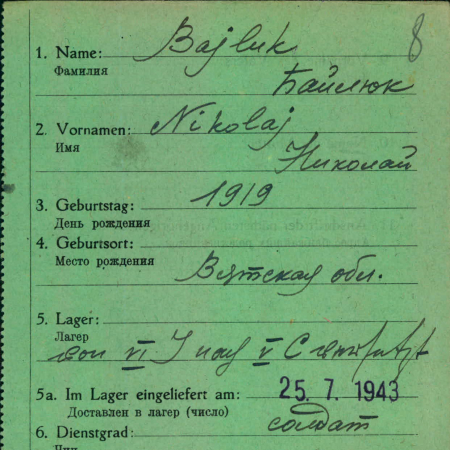 8
1. Name: Bajluk
Фамилия
Байлюк
2. Vornamen: Nikolaj
Имя
Николай
3. Geburtstag: 1919
День рождения
4. Geburtsort:
Место рождения
Вятская обл.
5. Lager:
Лагер
von VI J nach V C
5a. Im Lager eingeliefert am: 25. 7. 1943
Доставлен в лагер (число)
6. Dienstgrad: солдат
Чин